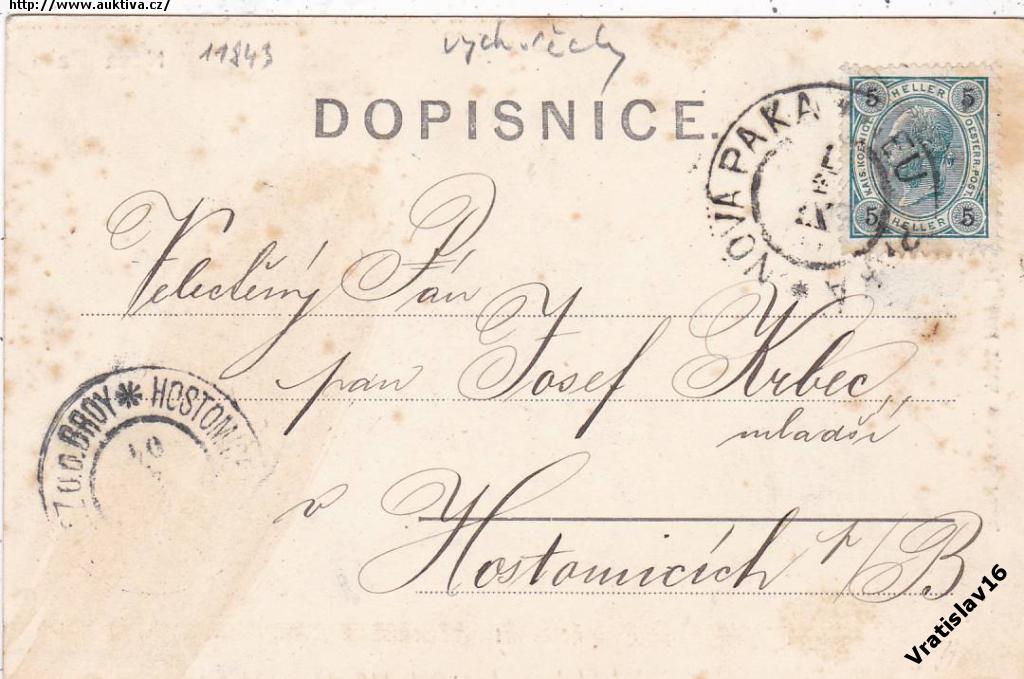 http://www.auktiva.cz/
11843
vých. Čechy
DOPISNICE.
NOVÁ PAKA
5 HELLER 5
KAIS. KOENIGL. OESTERR. POST.
5 HELLER 5
Velectěný Pán
pan Josef Krbec,
mladší
HOSTOMICE
v
Hostomicích p/B.
Vratislav16